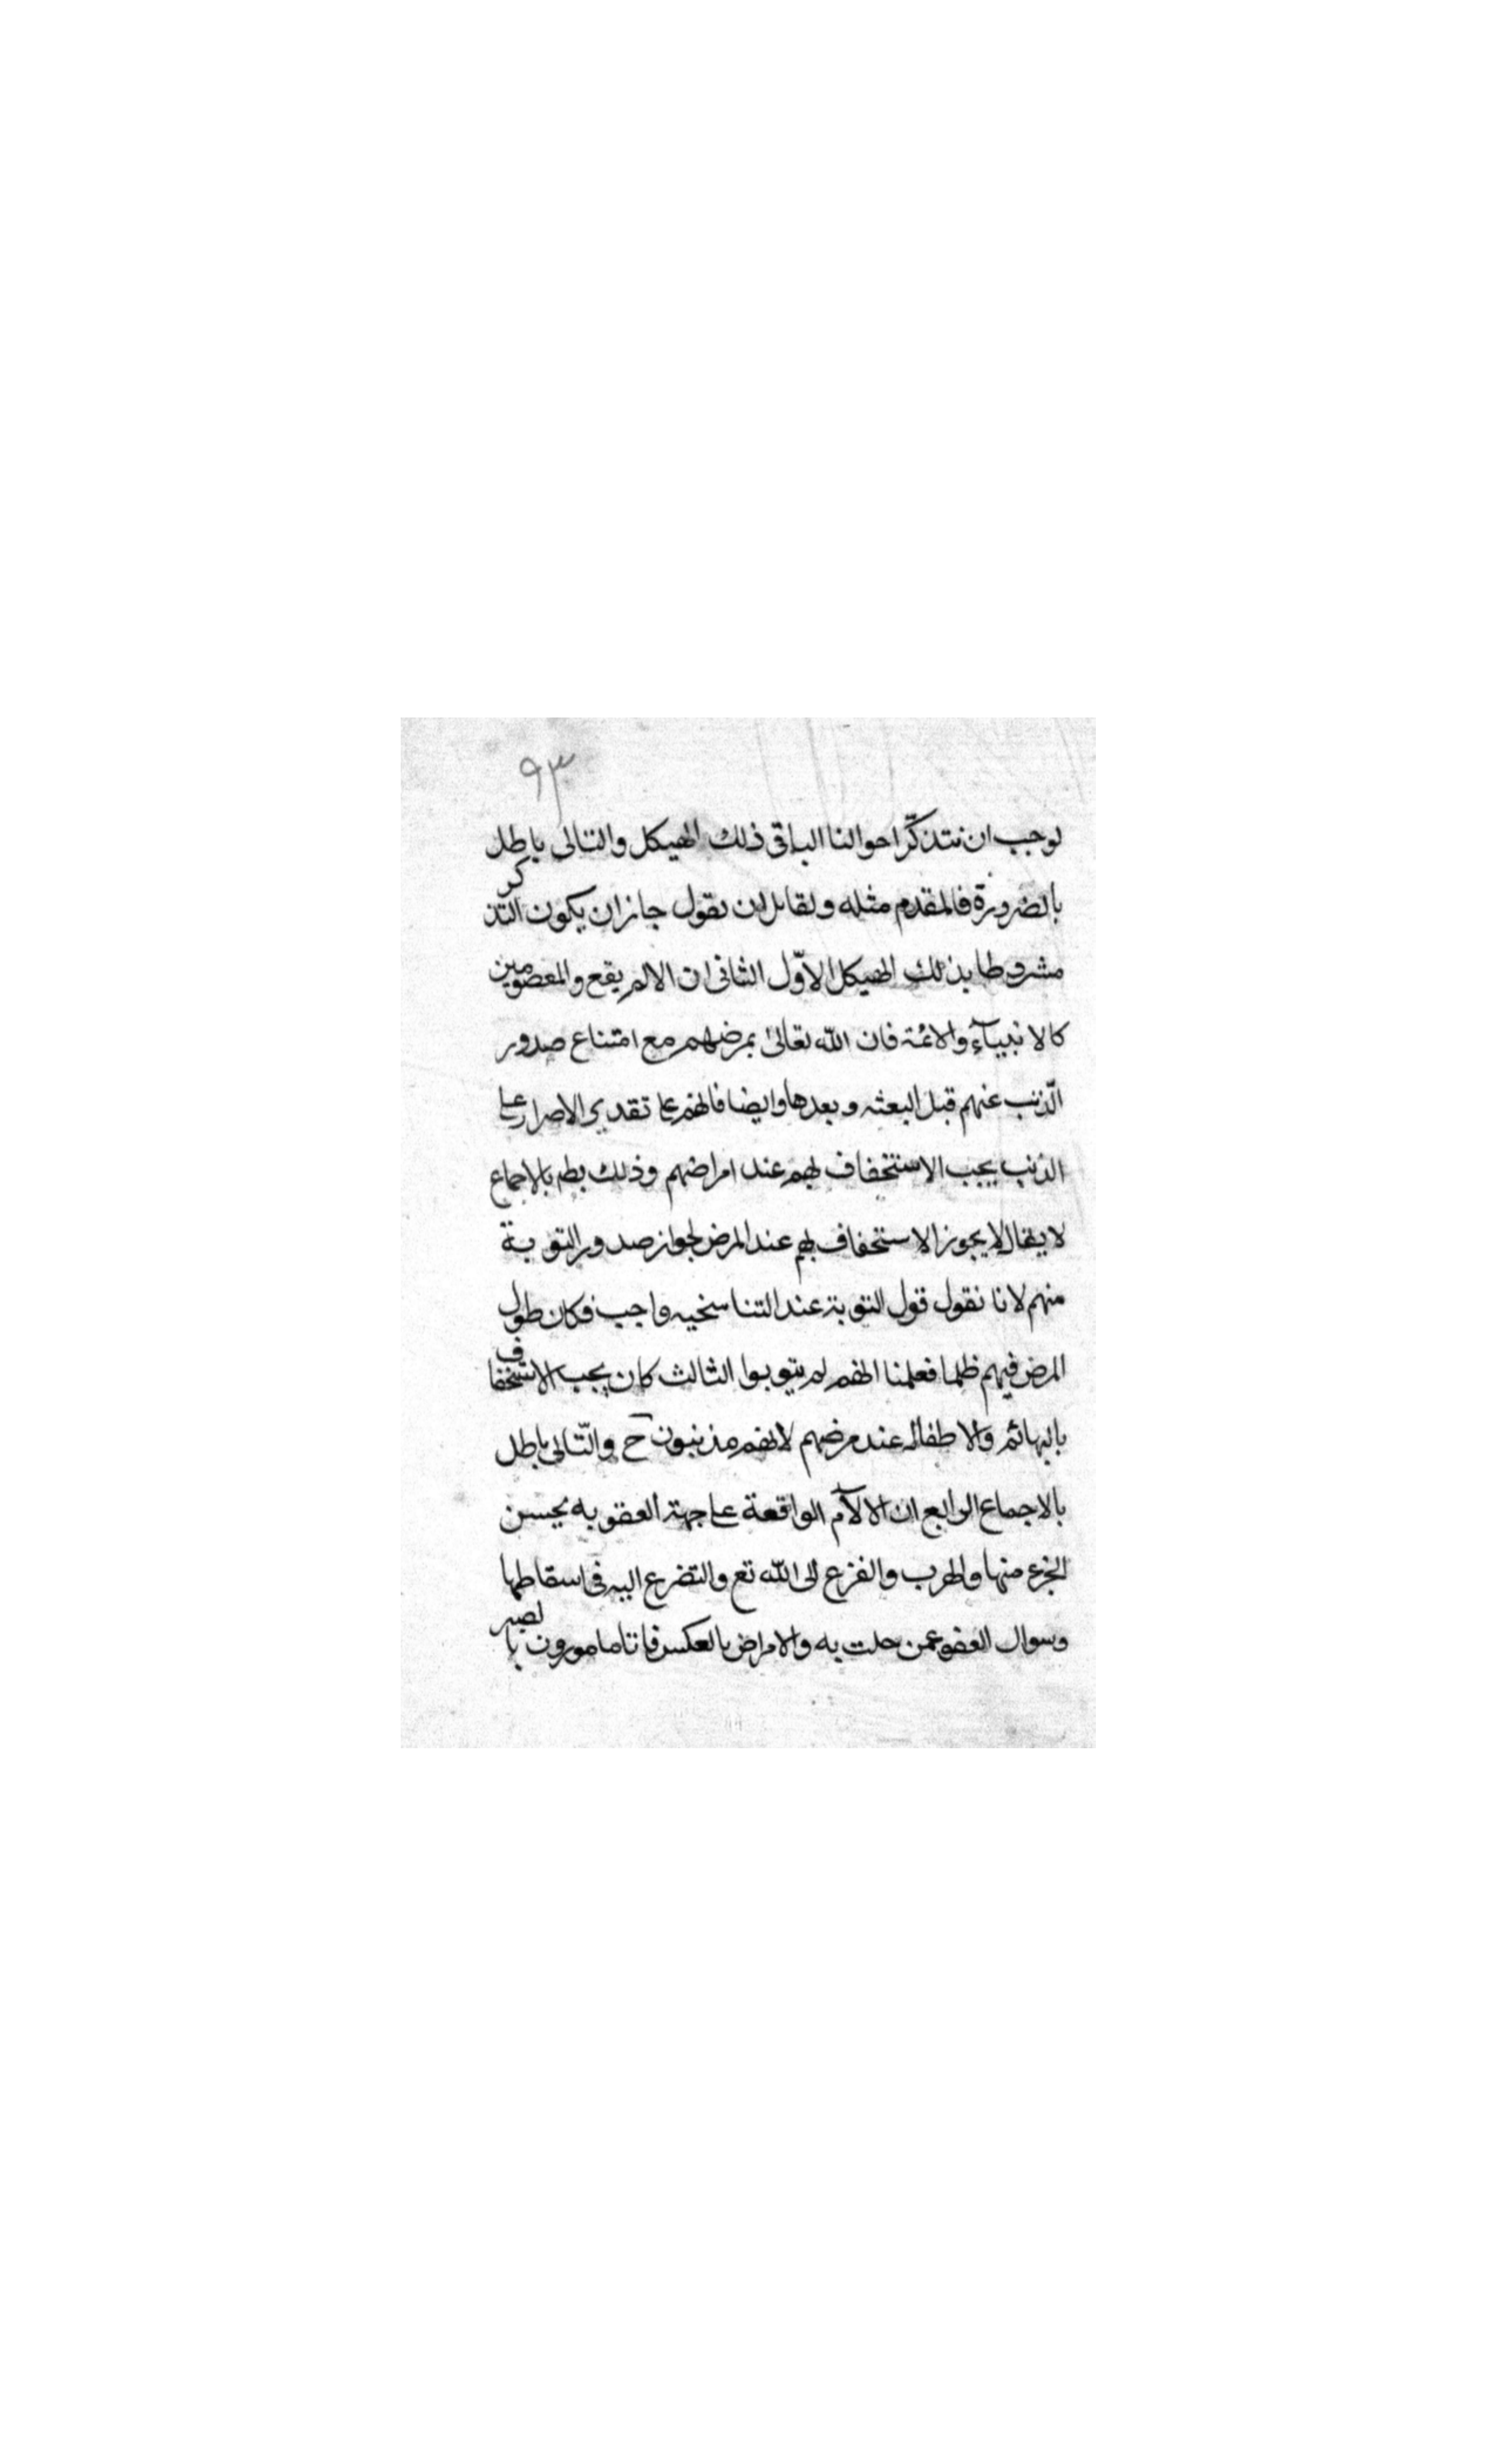 ٩٣
لوجب ان نتذكّر احوالنا الباقى ذلك الهيكل والتالى باطل
بالضرورة فالمقدم مثله ولقايل ان يقول جاز ان يكون التذكر
مشروطا بذلك الهيكل الاوّل الثانى ان الالم يقع والمعصومين
كالانبيآء والائمة فان الله تعالى يمرضهم مع امتناع صدور
الّذنب عنهم قبل البعثه وبعدها وايضا فانهم على تقدير الاصرار على
الذنب يجب الاستخفاف بهم عند امراضهم وذلك بط بالاجماع
لا يقال لا يجوز الاستخفاف بهم عند المرض لجواز صدور التوبة
منهم لانا نقول قول التوبة عند التناسخيه واجب فكان طول
المرض فيهم ظلما فعلمنا انهم لم يتوبوا الثالث كان يجب الاستخفاف
بالبهائم والاطفال عند مرضهم لانهم مذنبون ح والتّالى باطل
بالاجماع الرابع ان الالآم الواقعة على جهة العقوبه يحسن
الجزع منها والهرب والفزع الى الله تع والتضرع اليه فى اسقاطها
وسوال العفو عمن حلت به والامراض بالعكس فانا مامورون بالصبر